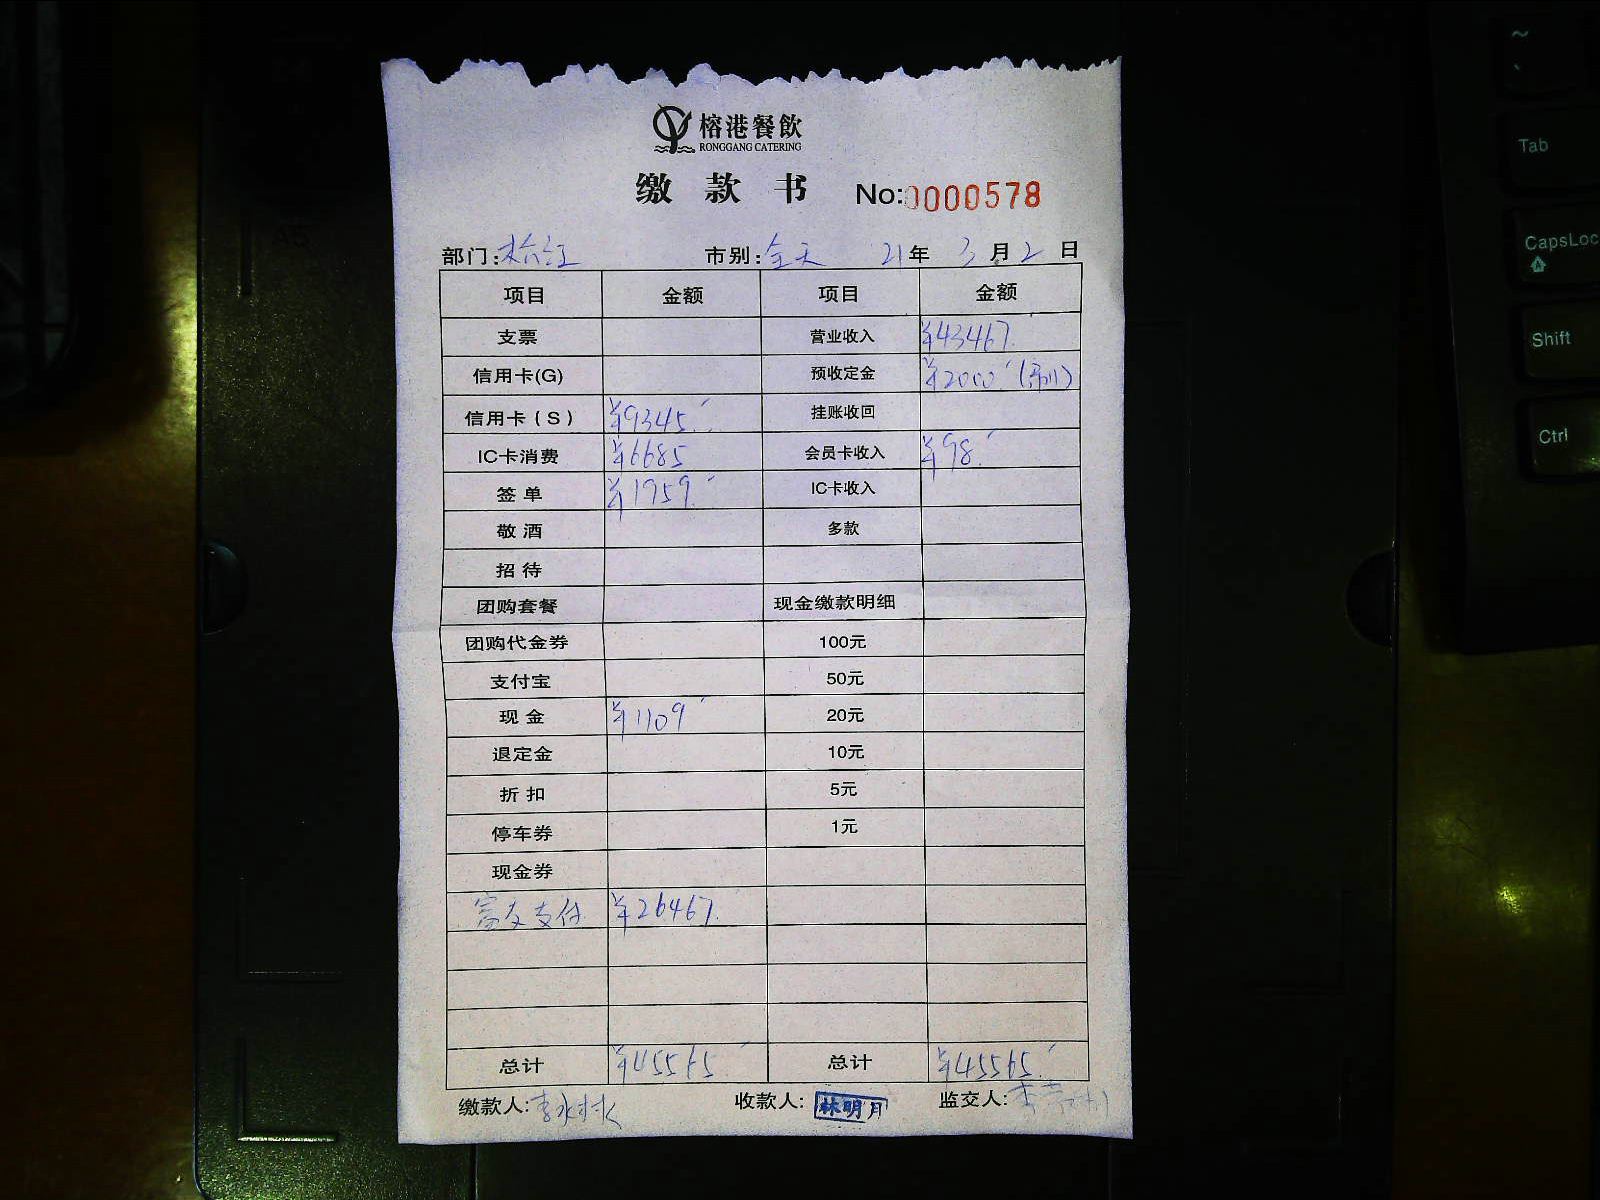 榕港餐飲
RONGGANG CATERING
缴款书 No:0000578
部门: 市别:全天 21年3月2日
项目 金额 项目 金额
支票 营业收入 ¥43467.
信用卡(G) 预收定金 ¥2000
信用卡(S) ¥9345. 挂账收回
IC卡消费 ¥6685 会员卡收入 ¥98.
签单 ¥1959. IC卡收入
敬酒 多款
招待
团购套餐 现金缴款明细
团购代金券 100元
支付宝 50元
现金 ¥1109 20元
退定金 10元
折扣 5元
停车券 1元
现金券
富友支付 ¥26467.
总计 ¥45565 总计 ¥45565.
缴款人: 收款人:林明月 监交人:
~
`
Tab
CapsLoc
Shift
Ctrl